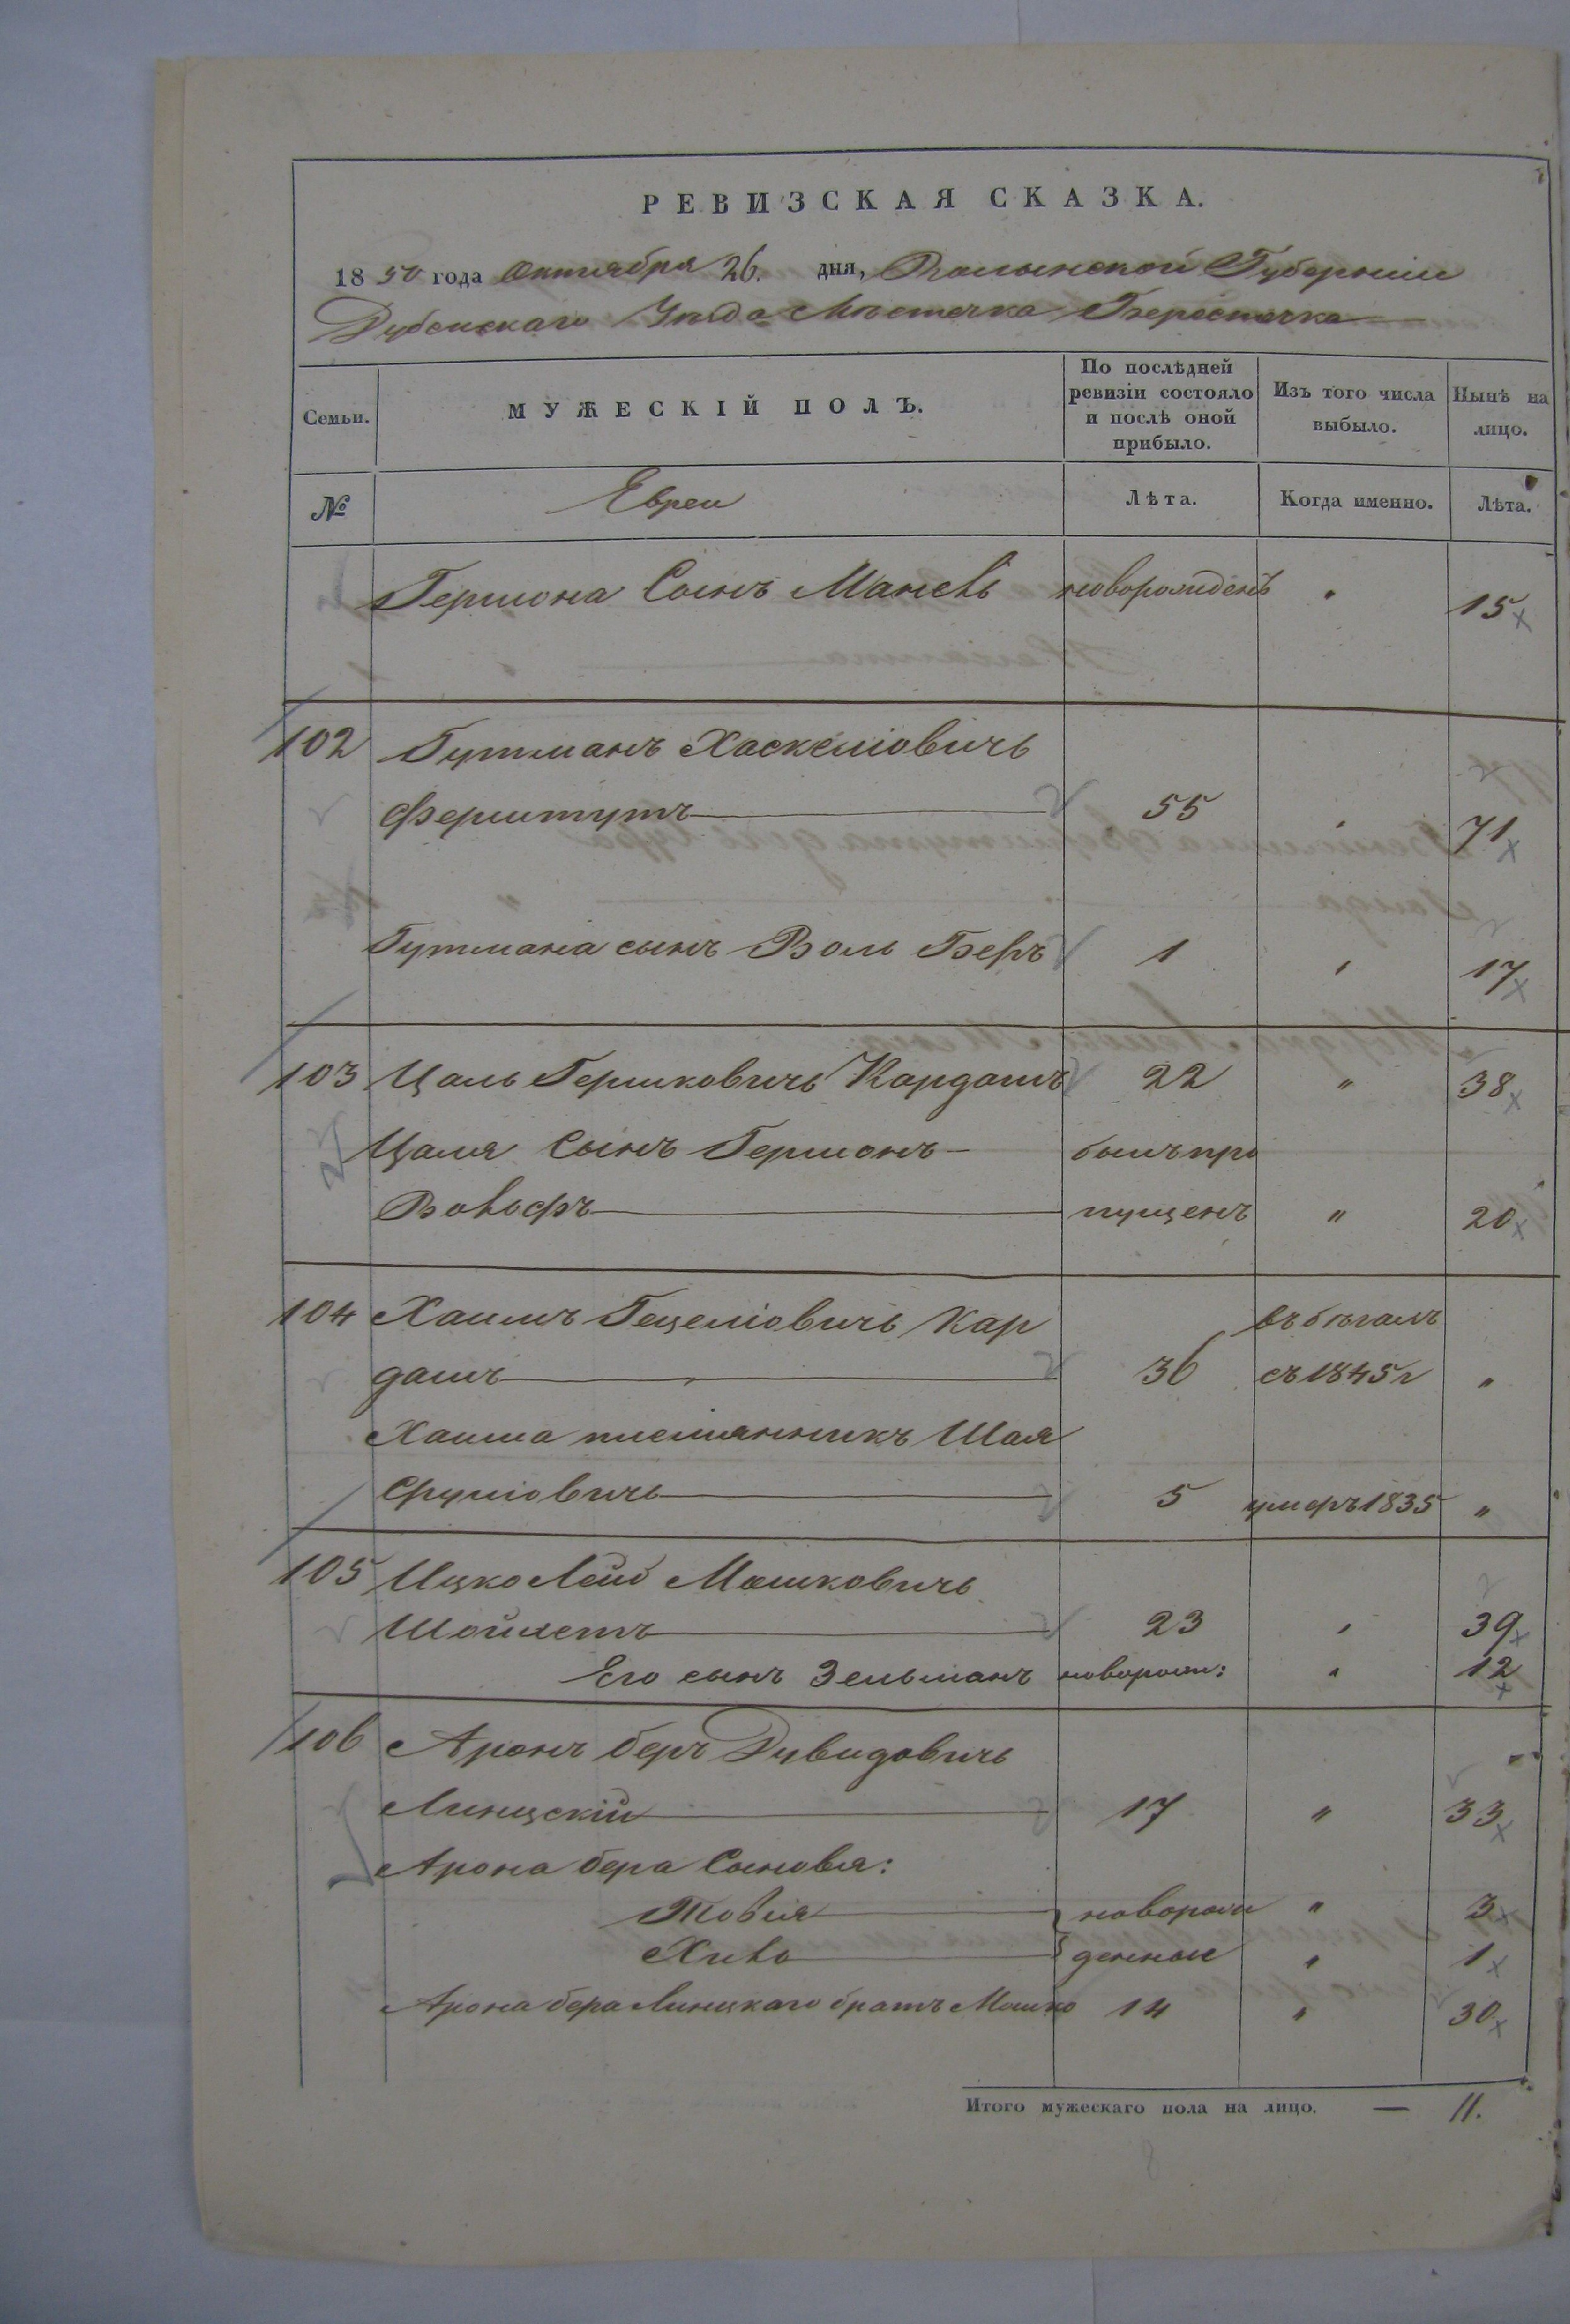 РЕВИЗСКАЯ СКАЗКА.
1850 года Октября 26. дня, Волынской Губерніи
Дубенскаго Уѣзда Мѣстечка Берестечка
Семьи.
МУЖЕСКІЙ ПОЛЪ.
По послѣдней ревизіи состояло и послѣ оной прибыло.
Изъ того числа выбыло.
Нынѣ на лицо.
№ Евреи Лѣта. Когда именно. Лѣта.
Гершона Сынъ Манель новорожденъ " 15
102 Гутманъ Хаскеліовичь
Ферштутъ 55 " 71
Гутмана сынъ Воль Беръ 1 " 17
103 Цаль Гершковичь Кардашъ 22 " 38
Цаля Сынъ Гершонъ былъ про
Вольфъ пущенъ " 20
104 Хаимъ Гецеліовичь Кар въ бѣгахъ
дашъ 36 съ 1845 г "
Хаима племянникъ Шая
Сруліовичь 5 умеръ 1835 "
105 Ицко Лейб Мошковичь
Шойхетъ 23 " 39
Его сынъ Зельманъ новорож: " 12
106 Аронъ беръ Дувидовичь
Линицскій 17 " 33
Арона бера Сыновья:
Товія новорож " 3
Хиль денные " 1
Арона бера Линицкаго братъ Мошко 14 " 30
Итого мужескаго пола на лицо. — 11.